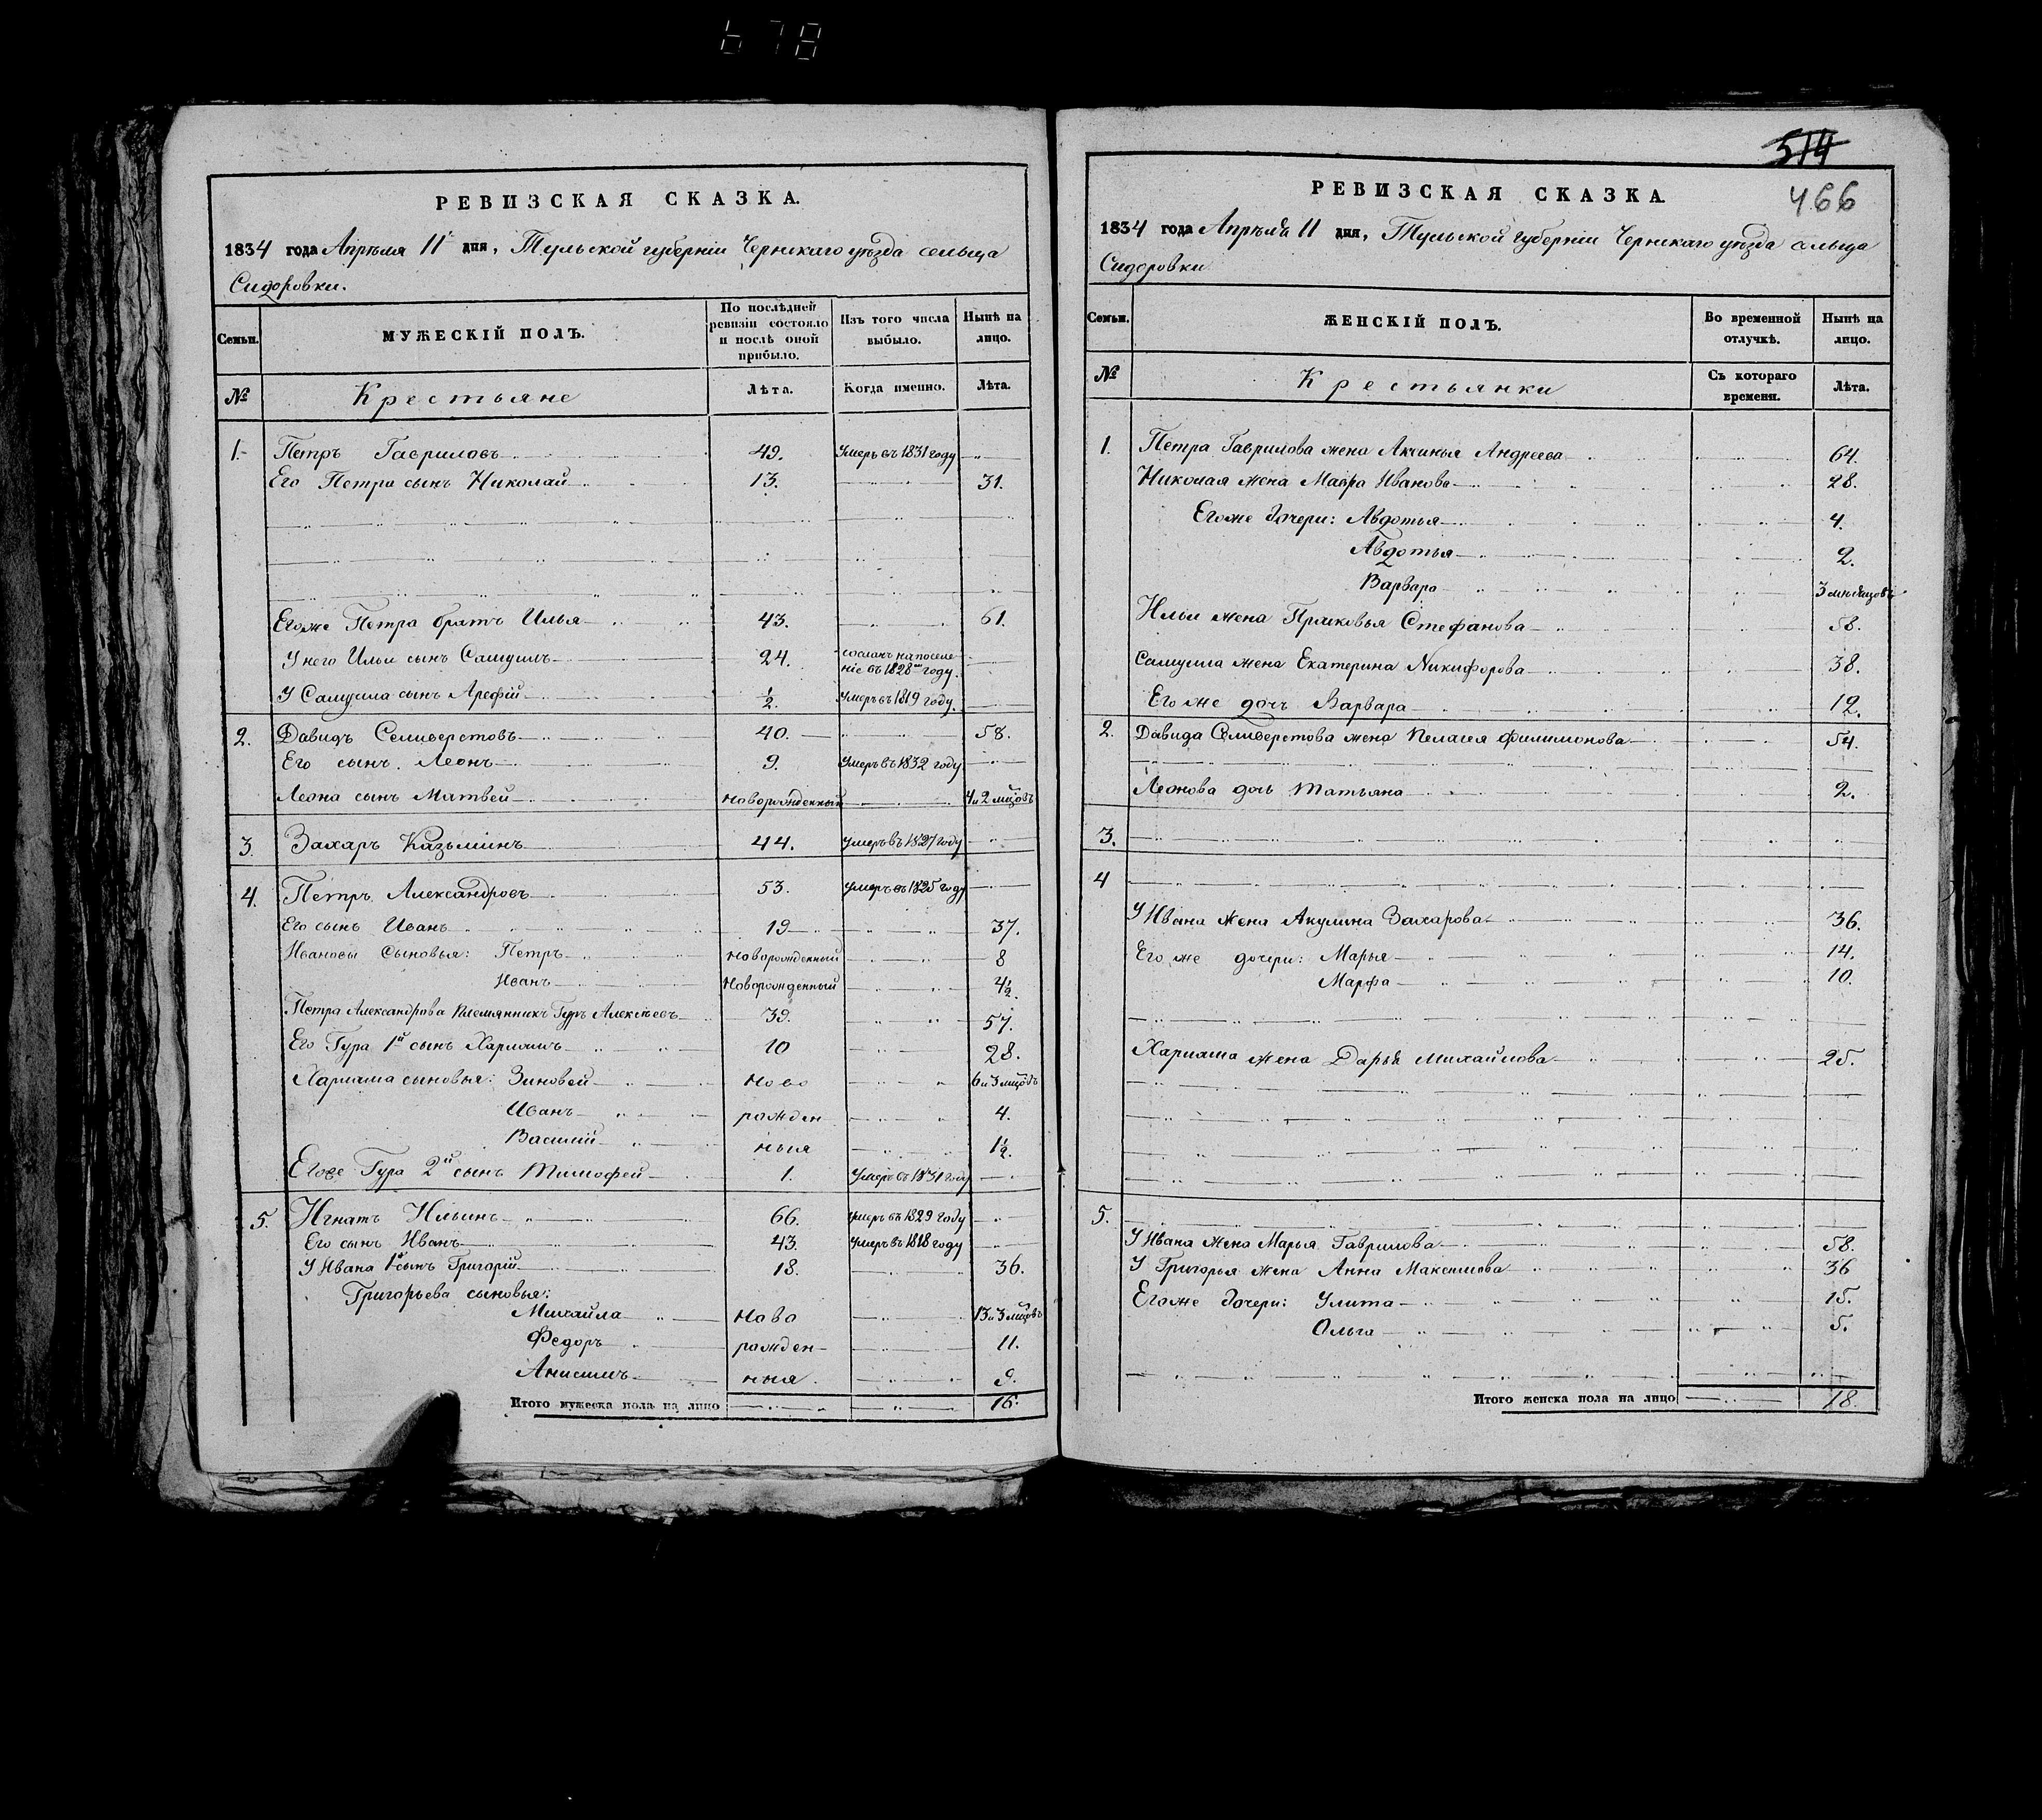 678
РЕВИЗСКАЯ СКАЗКА.
1834 года Апрѣля 11 дня, Тульской губерніи Чернскаго уѣзда сельца
Сидоровки.
Семьи.
МУЖЕСКІЙ ПОЛЪ.
По послѣдней ревизіи состояло и послѣ оной прибыло.
Изъ того числа выбыло.
Нынѣ на лицо.
№
Крестьяне
Лѣта.
Когда именно.
Лѣта.
1. Петръ Гавриловъ 49. Умеръ въ 1831 году
Его Петра сынъ Николай 13. 31.
Егоже Петра братъ Илья 43. 61.
У него Ильи сынъ Самуилъ 24. сосланъ на поселе
ніе въ 1828м году.
У Самуила сынъ Арефій 1/2. Умеръ въ 1819 году.
2. Давидъ Селиверстовъ 40. 58.
Его сынъ Леонъ 9. Умеръ въ 1832 году
Леона сынъ Матвей новорожденный 4 и 2 мѣцовъ
3. Захаръ Казьминъ 44. Умеръ въ 1827 году
4. Петръ Александровъ 53. Умеръ въ 1825 году
Его сынъ Иванъ 19 37.
Ивановы сыновья: Петръ Новорожденный 8
Иванъ Новорожденный 4 1/2.
Петра Александрова племянникъ Гуръ Алексѣевъ 39. 57.
Его Гура 1й сынъ Харламъ 10 28.
Харлама сыновья: Зиновей Ново 6 и 3 мѣцовъ
Иванъ рожден 4.
Василий ныя 1 1/2.
Егоже Гура 2й сынъ Тимофей 1. Умеръ въ 1831 году
5. Игнатъ Ильинъ 66. Умеръ въ 1829 году
Его сынъ Иванъ 43. Умеръ въ 1818 году
У Ивана 1й сынъ Григорій 18. 36.
Григорьева сыновья:
Михайла Ново 13 и 3 мѣцовъ
Федоръ рожден- 11.
Анисимъ ныя. 9.
Итого мужеска пола на лицо 16.
514
466
РЕВИЗСКАЯ СКАЗКА.
1834 года Апрѣля 11 дня, Тульской губерніи Чернскаго уѣзда сельца
Сидоровки
Семьи.
ЖЕНСКІЙ ПОЛЪ.
Во временной отлучкѣ.
Нынѣ на лицо.
№
Крестьянки
Съ котораго времени.
Лѣта.
1. Петра Гаврилова жена Аксинья Андреева 64.
Николая жена Мавра Иванова 28.
Егоже дочери: Авдотья 4.
Авдотья 2.
Варвара 3 мѣсяцовъ
Ильи жена Прасковья Стефанова 58.
Самуила жена Екатерина Никифорова 38.
Его же дочь Варвара 12.
2. Давида Селиверстова жена Пелагея Филимонова 54.
Леонова дочь Татьяна 2.
3.
4
У Ивана жена Акулина Захарова 36.
Его же дочери: Марья 14.
Марфа 10.
Харлама жена Дарья Михайлова 25.
5.
У Ивана жена Марья Гаврилова 58.
У Григорья жена Анна Максимова 36
Егоже дочери: Улита 15.
Ольга 5.
Итого женска пола на лицо 18.